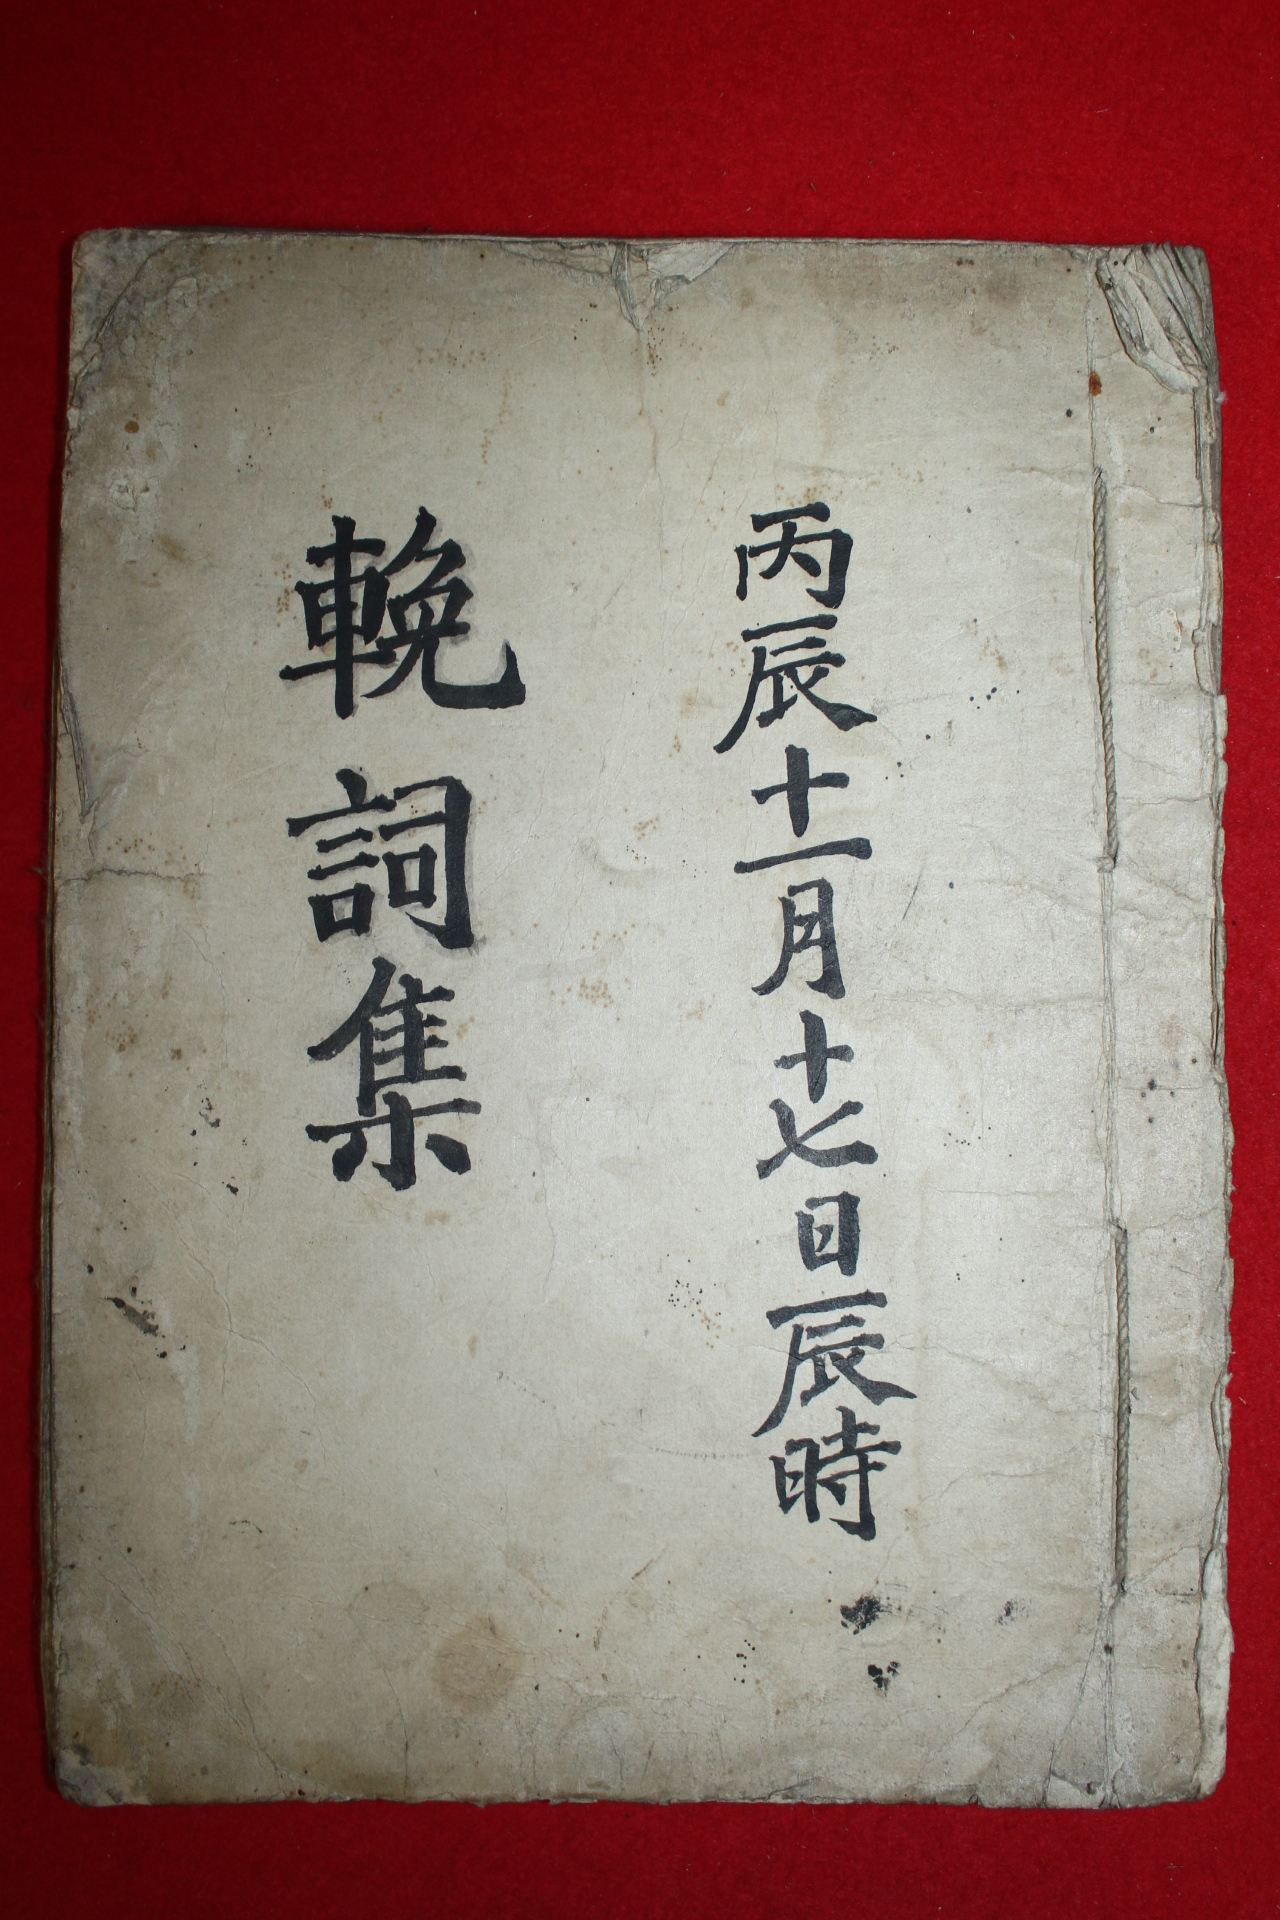 丙辰十一月十七日辰時
輓詞集